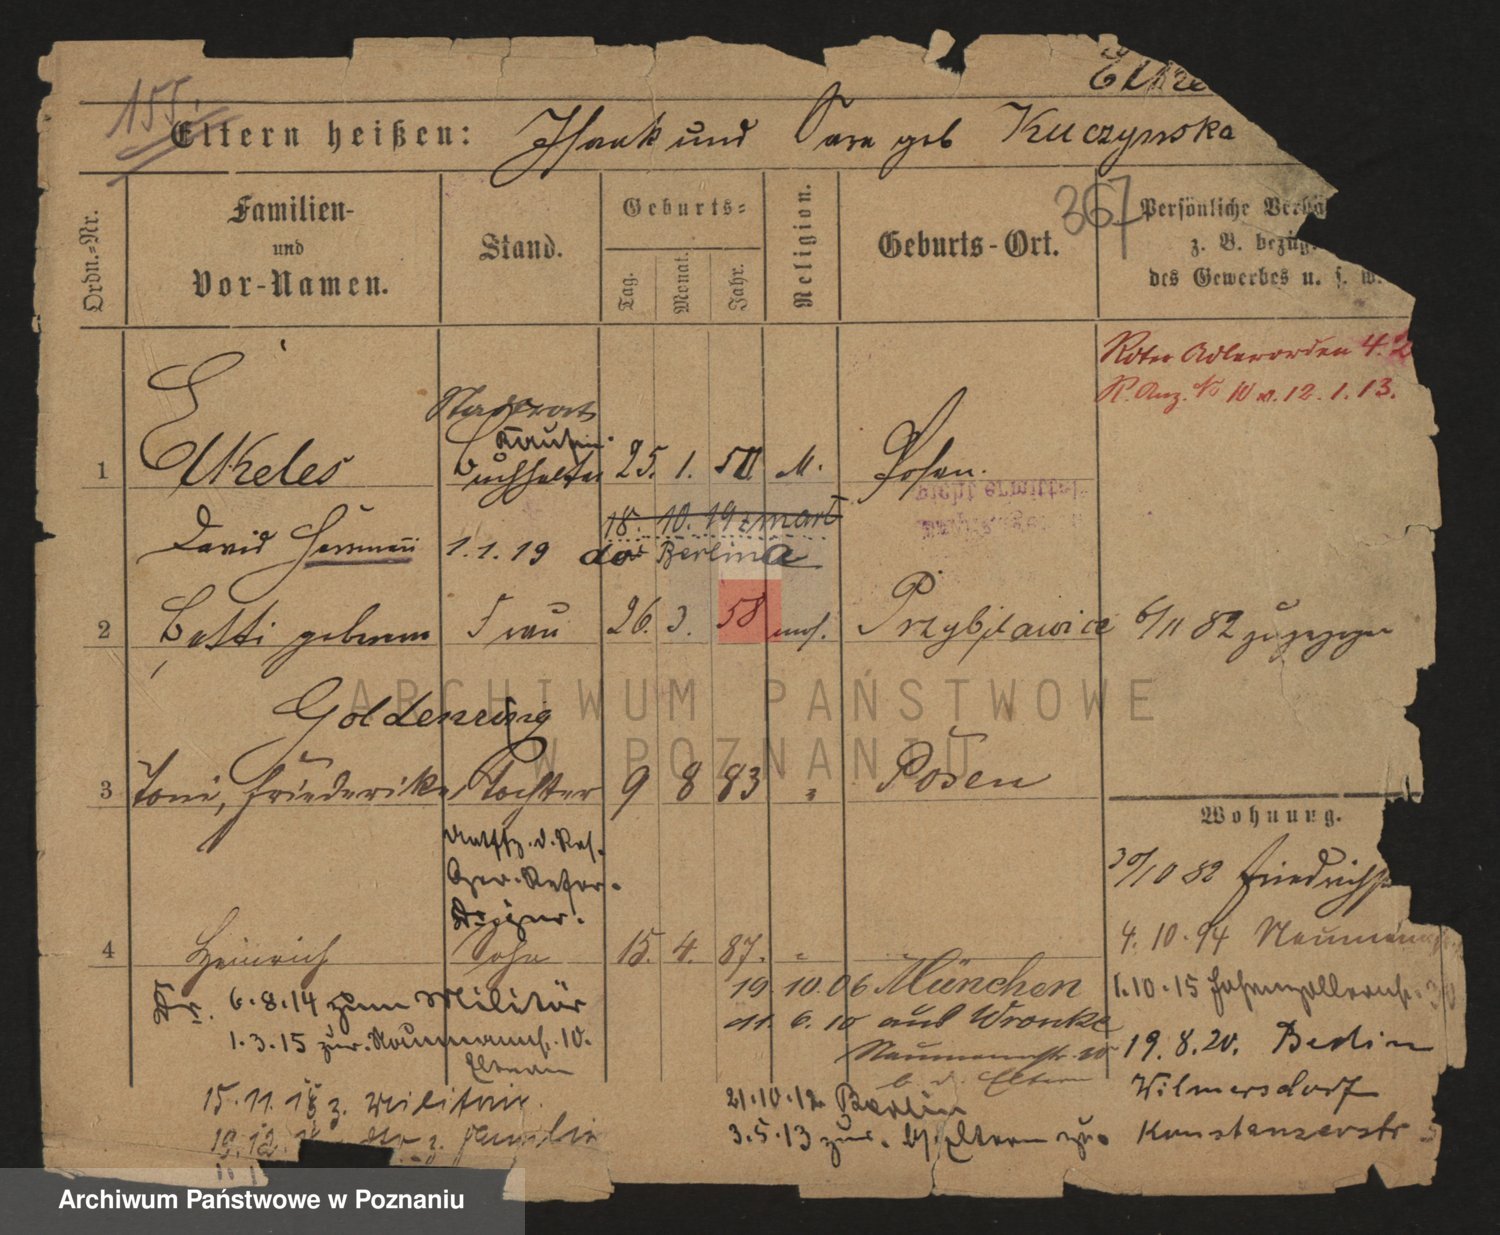 155.
Elkeles
Eltern heißen: Isaak und Sara geb Kuczynska
367
Ordn.-Nr.
Familien-
und
Vor-Namen.
Stand.
Geburts-
Tag.
Monat.
Jahr.
Religion.
Geburts-Ort.
Persönliche
z. B. bezüg
des Gewerbes u. s. w.
Roter Adlerorden 4.
R. Anz. No 10 v. 12. 1. 13.
Stadtrat
Kaufm.
1 Elkeles Buchhalter 25. 1. 50 M. Posen.
nicht ermittelt
18. 10. 19
David Herrmann 1. 1. 19 Berlin
2 Betti geborene Frau 26. 3. 58 mos. Przybislawice 6/11 82 zugezogen
Goldenring
3 Toni, Friederike, Tochter 9 8 83 " Posen
Wohnung.
30/10 82 Friedrichstr
4 Heinrich Sohn 15. 4. 87. "
4. 10. 94 Naumannstr
Dr. 6. 8. 14 zum Militär
19. 10. 06 München
1. 10. 15 Hohenzollernstr
1. 3. 15 zur. Naumannstr. 10.
Eltern
11. 6. 10 aus Wronke
Naumannstr. 10
b. d. Eltern
19. 8. 20. Berlin
Wilmersdorf
Konstanzerstr 5
15. 11. 15 z. Militair.
21. 10. 12 Berlin
3. 5. 13 zur. Eltern
19. 12. z. Familie
ARCHIWUM PAŃSTWOWE
W POZNANIU
Archiwum Państwowe w Poznaniu